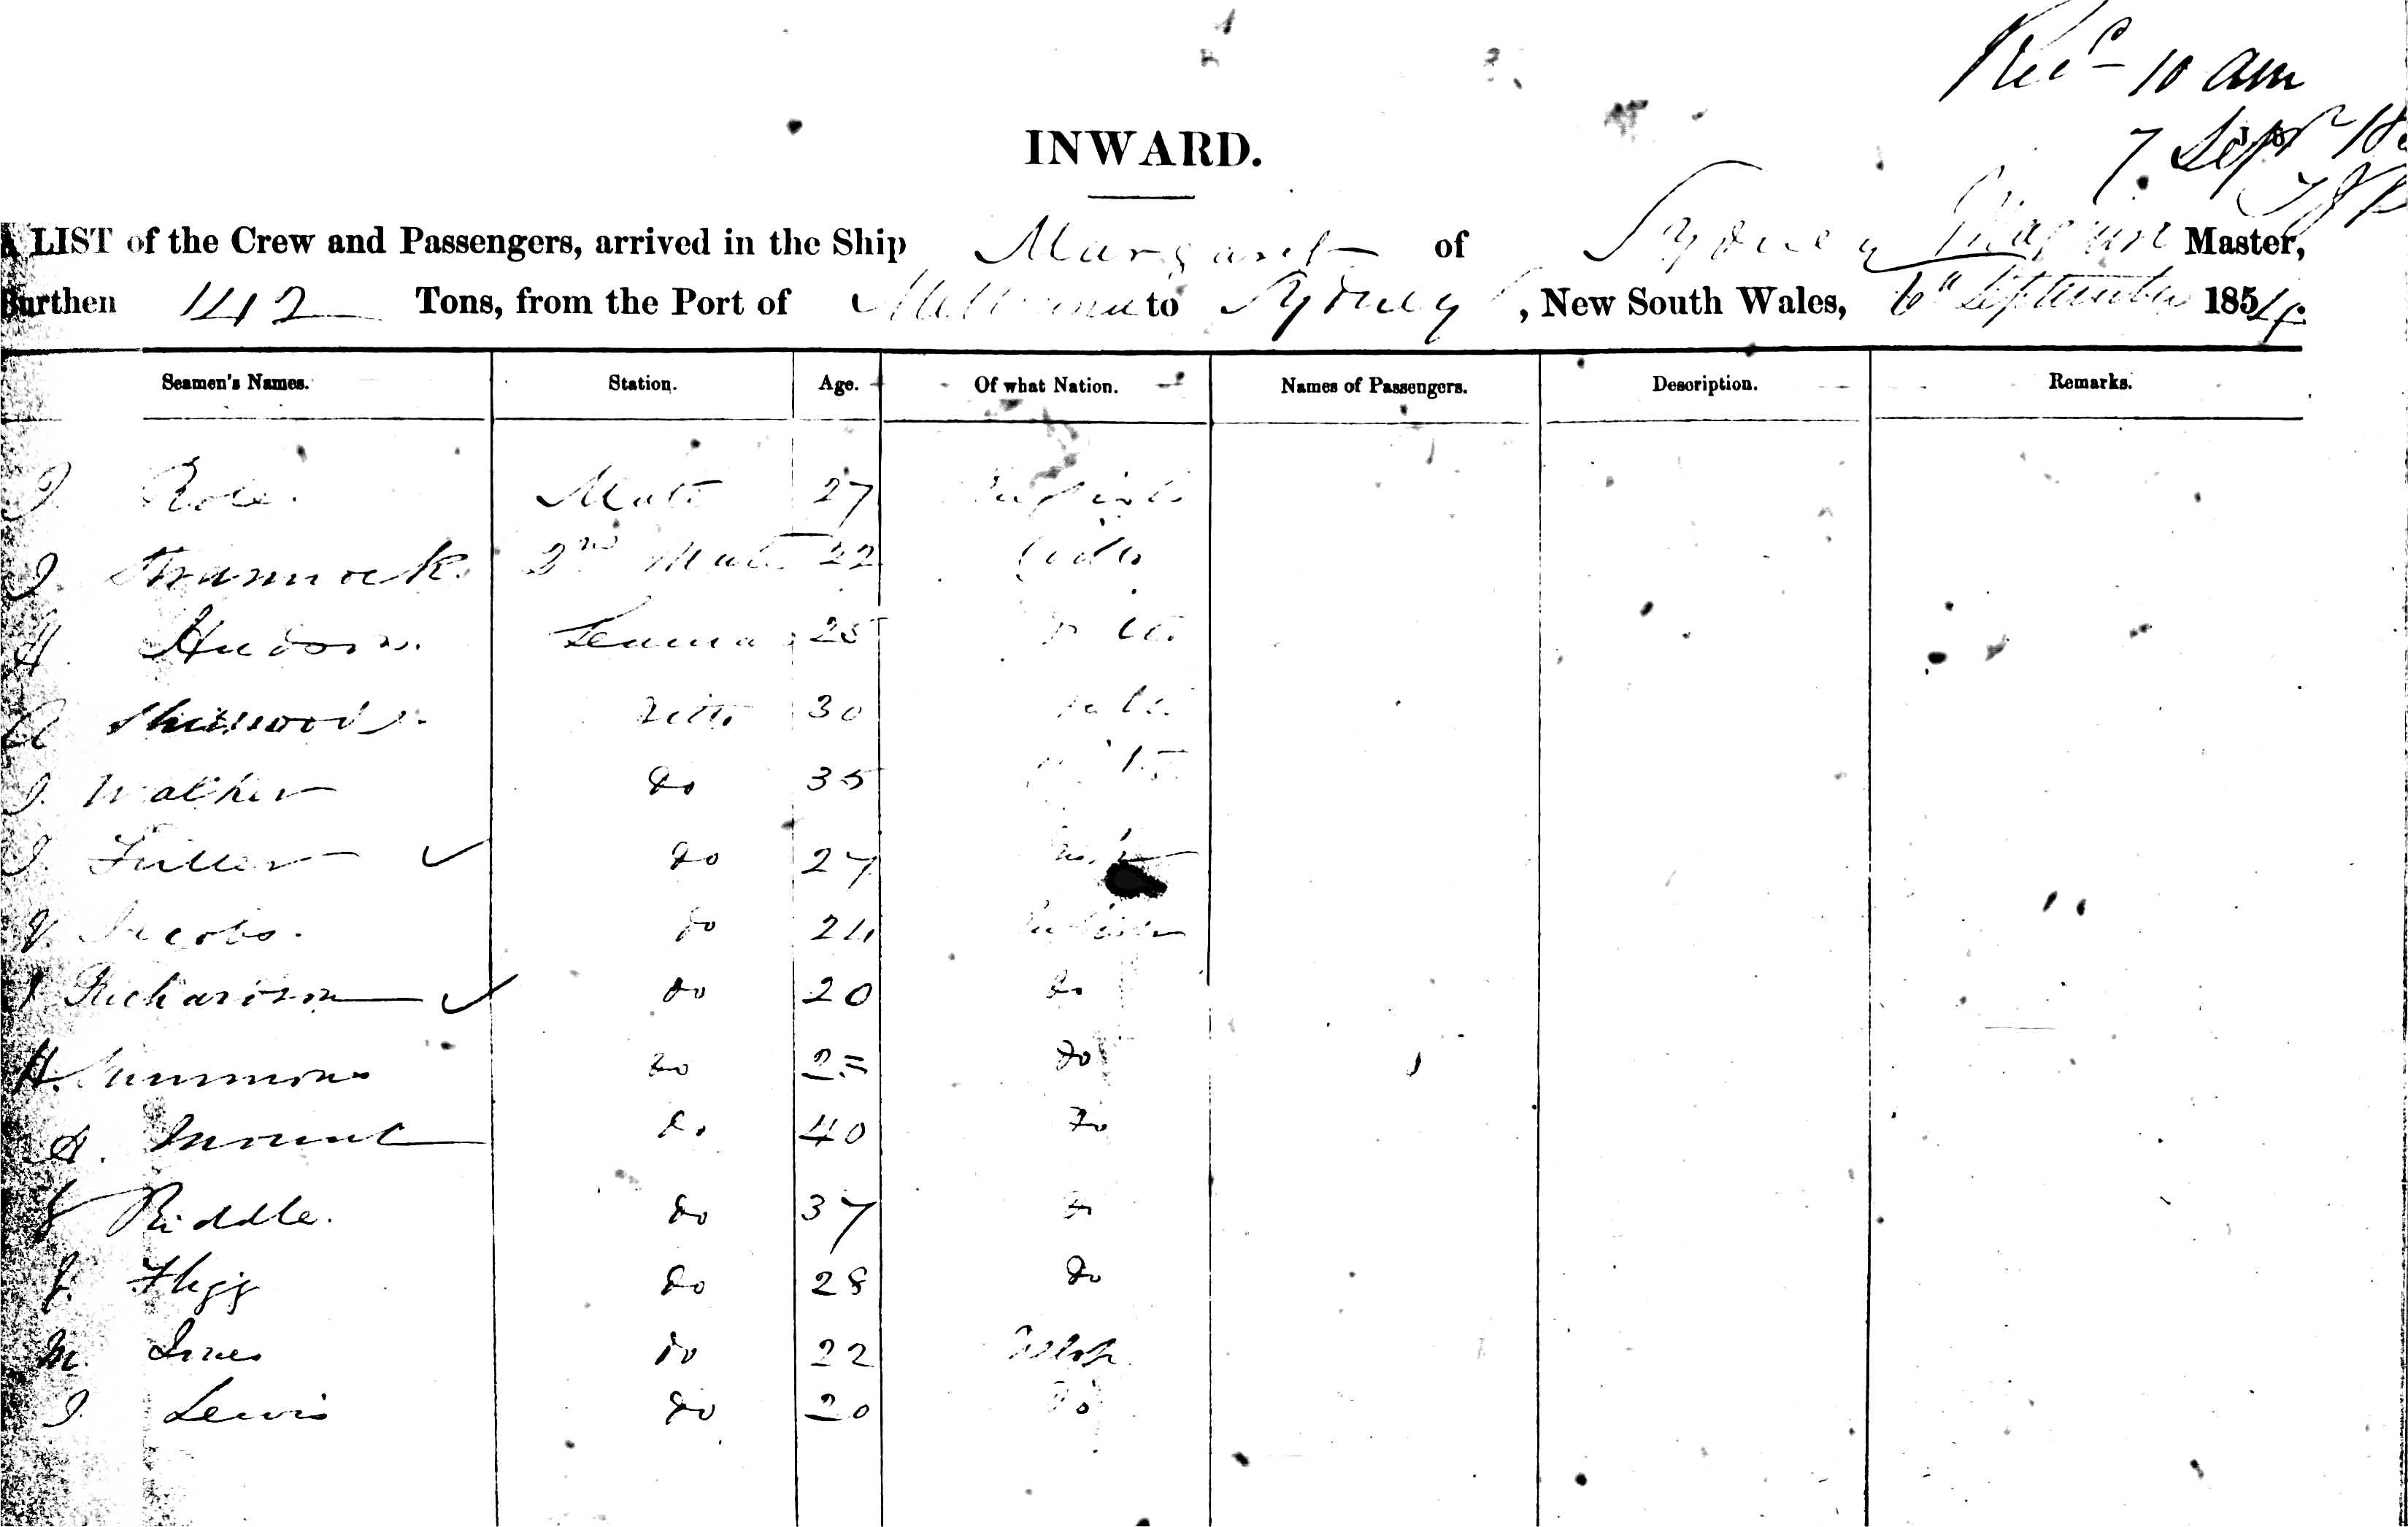 Recd 10 am
7 Sepr 18
INWARD.
A LIST of the Crew and Passengers, arrived in the Ship Margaret of Sydney Master,
Burthen 142 Tons, from the Port of Melbourne to Sydney, New South Wales, 6th September 1854.
Seamen's Names. Station. Age. Of what Nation. Names of Passengers. Description. Remarks.
J. Role. Mate 27
J. 2nd Mate 22 ditto
H. Hudson. Seaman 25 ditto
ditto 30 ditto
J. Walker do 35
J. Fuller ✓ do 27
Jacobs. do 24
J Richardson ✓ do 20 do
H. Summons do 25 do
A. Mount do 40 do
J Riddle. do 37 do
J. Flegg do 28 do
M. Innes do 22
J. Lewis do 20 do